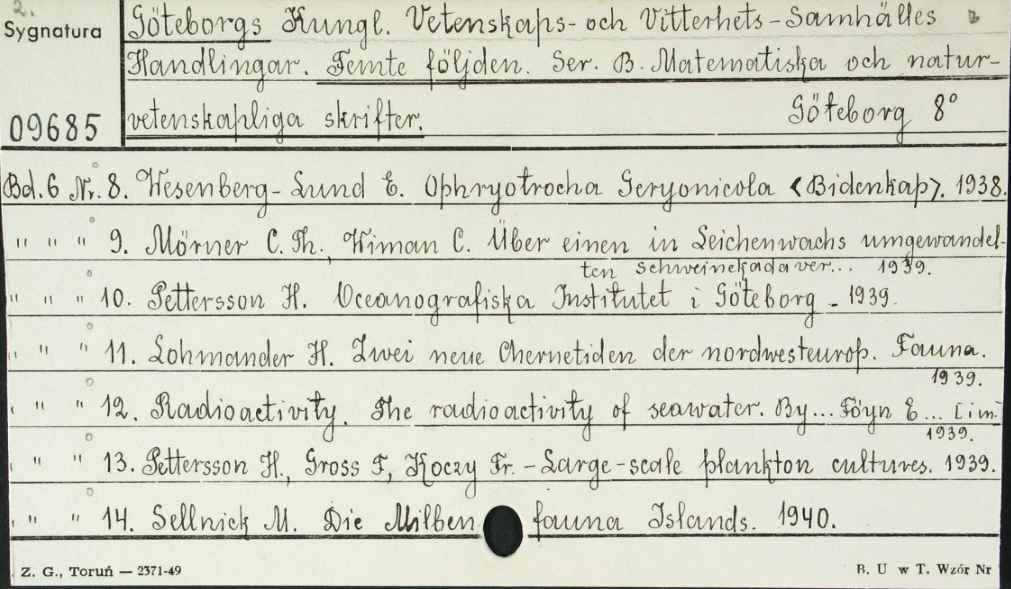 2.
Sygnatura
09685
Göteborgs Kungl. Vetenskaps- och Vitterhets-Samhälles
Handlingar. Femte följden. Ser. B. Matematiska och natur-
vetenskapliga skrifter.
Göteborg 8°
Bd. 6 Nr. 8. Wesenberg-Lund E. Ophryotrocha Geryonicola <Bidenkap>. 1938.
" " " 9. Mörner C. Th., Wiman C. Über einen in Leichenwachs umgewandel-
ten Schweinekadaver... 1939.
" " " 10. Pettersson H. Oceanografiska Institutet i Göteborg - 1939.
" " " 11. Lohmander H. Zwei neue Chernetiden der nordwesteurop. Fauna.
1939.
" " " 12. Radioactivity. The radioactivity of seawater. By... Föyn E... [i in.]
1939.
" " " 13. Pettersson H., Gross F., Koczy Fr. - Large-scale plankton cultures. 1939.
" " " 14. Sellnick M. Die Milbenfauna Islands. 1940.
Z. G., Toruń — 2371-49
B. U w T. Wzór Nr